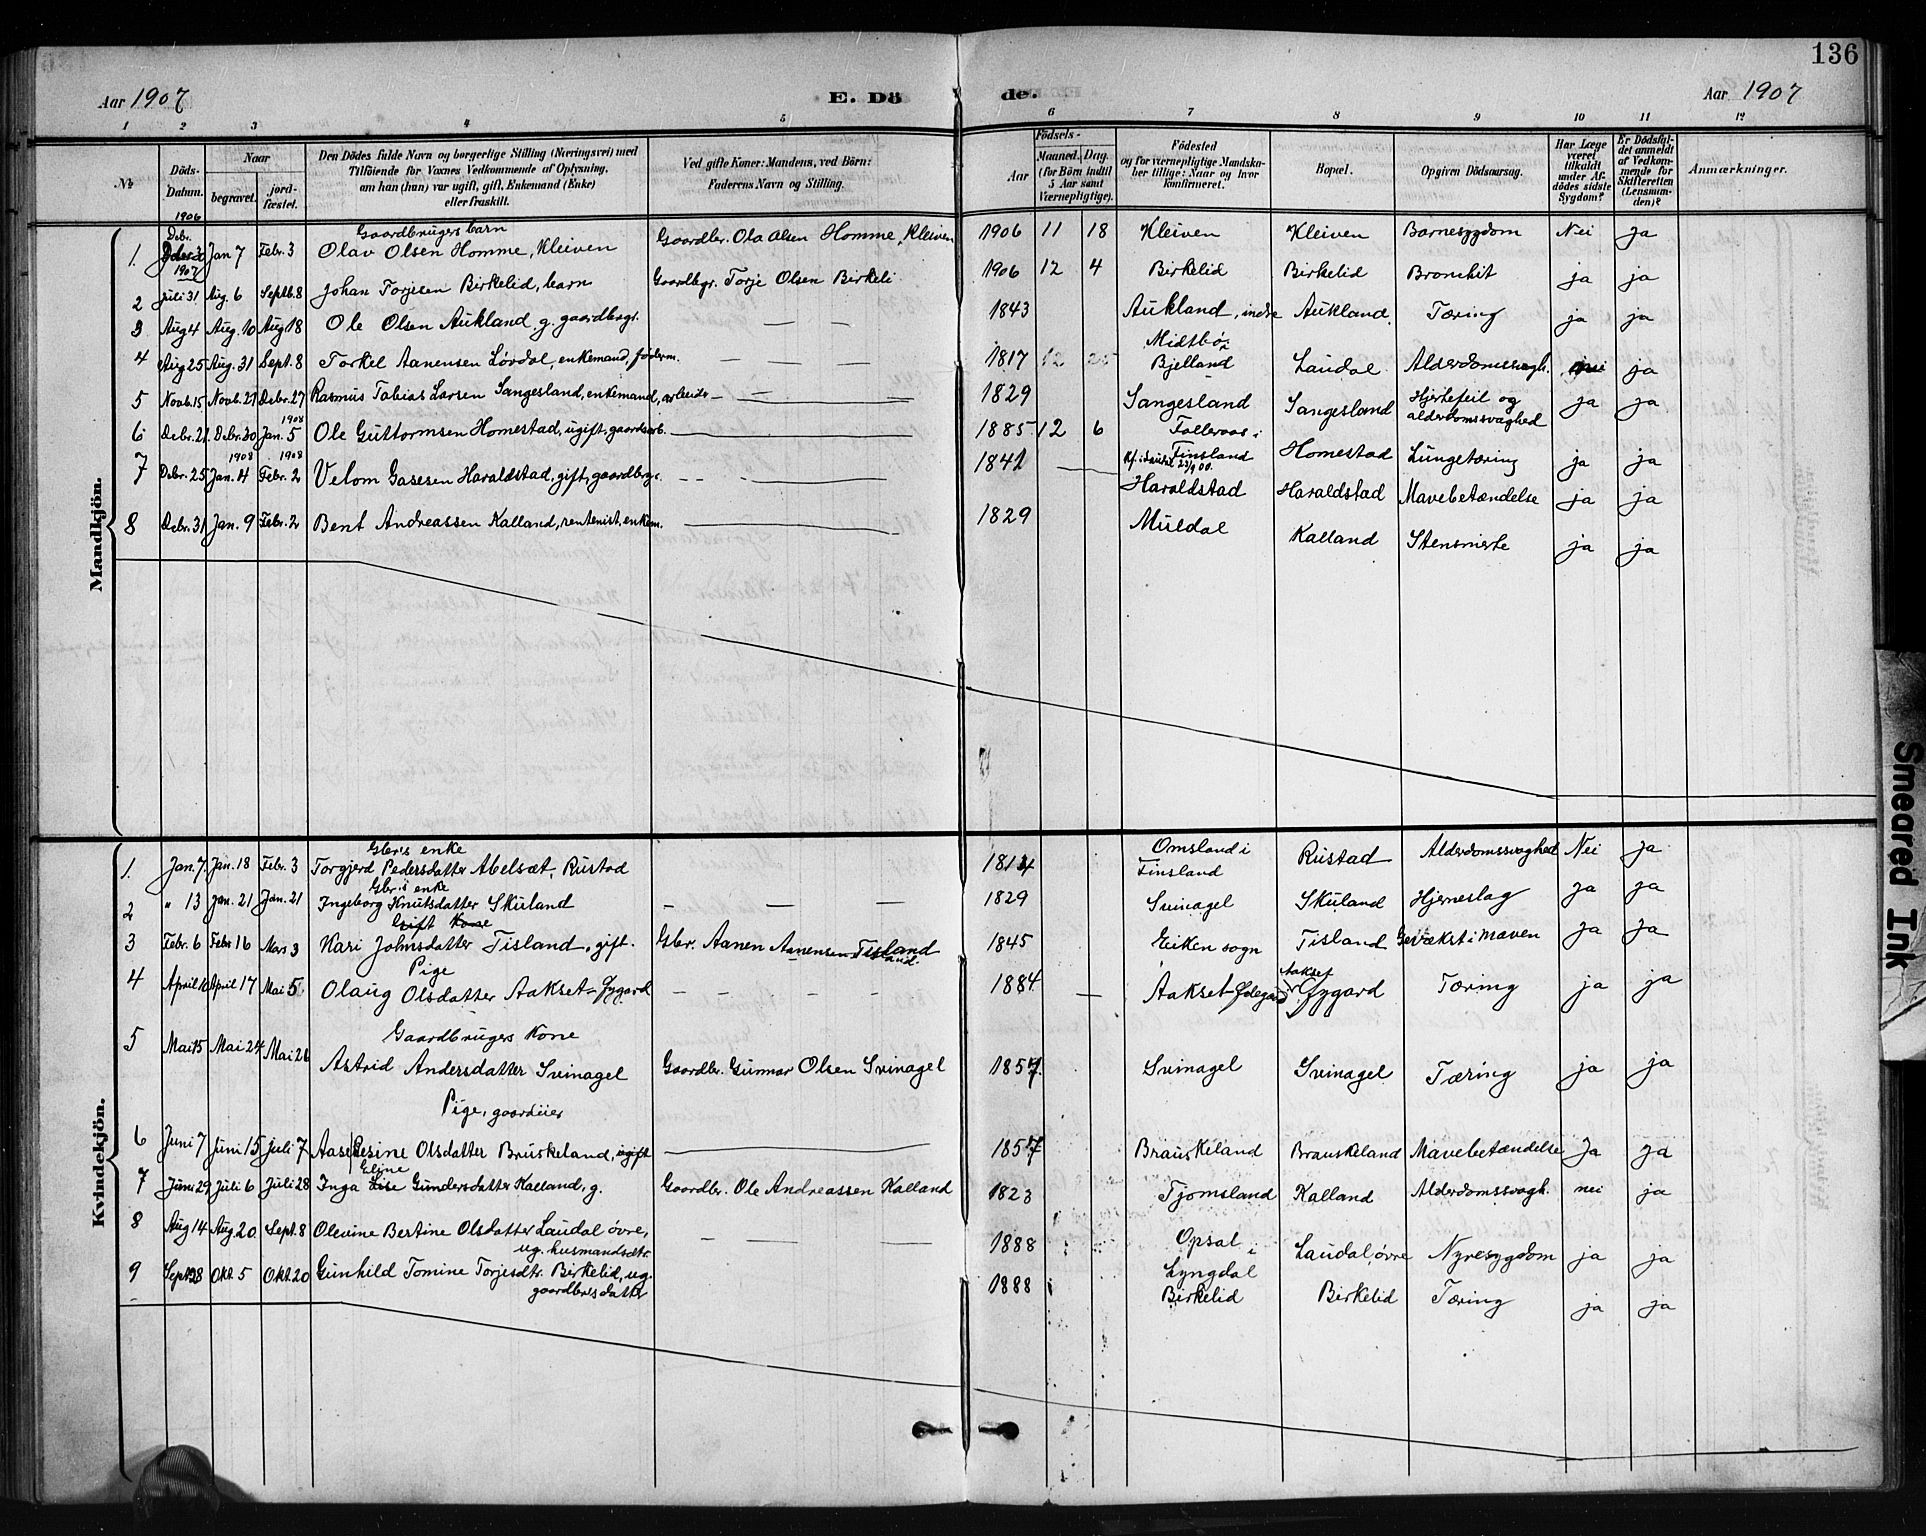 136
Aar 1907 E. Dö de. Aar 1907
1 2 3 4 5 6 7 8 9 10 11 12
No
Döds-Datum.
Naar
begravet.
jord-fæstet.
Den Dödes fulde Navn og borgerlige Stilling (Næringsvei) med
Tilföiende for Voxnes Vedkommende af Oplysning,
om han (hun) var ugift, gift, Enkemand (Enke)
eller fraskilt.
Ved gifte Koner: Mandens, ved Börn:
Faderens Navn og Stilling.
Födsels-
Aar
Maaned. Dag.
(for Börn indtil
5 Aar samt
Værnepligtige).
Födested
og for værnepligtige Mandska-
ber tillige: Naar og hvor
konfirmeret.
Bopæl.
Opgiven Dödsaarsag.
Har Læge
været
tilkaldt
under Af-
dödes sidste
Sygdom?
Er Dödsfal-
det anmeldt
af Vedkom-
mende for
Skifteretten
(Lensman-
den)?
Anmærkninger.
Mandkjön.
1906
Gaardbrugers barn
1. Debr. Jan 7 Febr. 3 Olav Olsen Homme, Kleiven Gaardbr. Ola Olsen Homme, Kleiven 1906 11 18 Kleiven Kleiven Barnesygdom Nei ja
1907
2 Juli 31 Aug. 6 Septb. 8 Johan Torjesen Birkelid, barn Gaardbgr. Torje Olsen Birkeli 1906 12 4 Birkelid Birkelid Bronchit ja ja
3 Aug 4 Aug. 10 Aug 18 Ole Olsen Aukland, g. gaardbrgr. — — 1843 Aukland, indre Aukland Tæring ja ja
4 Aug 25 Aug. 31 Sept. 8 Torkel Aanensen Lövdal, enkemand, föderm. — — — 1817 12 25 Midtbö Bjelland Laudal Alderdomssvagh. nei ja
5 Novb. 15 Novb. 27 Debr. 27 Rasmus Tobias Larsen Sangesland, enkemand, arbeider — — 1829 Sangesland Sangesland Hjertefeil og alderdomssvaghed ja ja
6 Debr. 21 Debr. 30 1908 Jan. 5 Ole Guttormsen Homestad, ugift, gaardarb. 1885 12 6 Folleraas i Finsland Homestad Lungetæring ja ja
Kf. i Laudal 23/9 00.
7 Debr. 25 1908 Jan. 4 1908 Febr. 2 Velom Gasesen Haraldstad, gift, gaardbrgr. — — 1841 — Haraldstad Haraldstad Mavebetændelse ja ja
8 Debr. 31 Jan. 9 Febr. 2 Bent Andreassen Kalland, rentenist, enkem. 1829 Muldal Kalland Stensmerte ja ja
Kvindekjön.
Gbr's enke
1. Jan. 7. Jan. 18 Febr. 3 Torgjerd Pedersdatter Abelsæt, Rustad 1814 Omsland i Finsland Rustad Alderdomssvaghed Nei ja
Gbr's enke
2 " 13 Jan. 21 Jan. 21 Ingeborg Knutsdatter Skuland — — — 1829 Svinagel Skuland Hjerneslag ja ja
Gift Kone
3 Febr. 6 Febr 16 Mars 3 Kari Johnsdatter Tisland, gift. Gbr. Aanen Aanensen Tisland 1845 Eiken sogn Tisland Gevækst i Maven ja ja
Pige
4 April 10 April 17 Mai 5 Olaug Olsdatter Aakset-Øygard — — — — 1884 — Aakset-Ødegard Aakset Øygard Tæring ja ja
Gaardbrugers Kone
5 Mai 15 Mai 24 Mai 26 Astrid Andersdatter Svinagel Gaardbr. Gunnar Olsen Svinagel 1857 Svinagel Svinagel Tæring ja ja
Pige, gaardeier
6 Juni 7 Juni 15 Juli 7 Aase Resine Olsdatter Bruskeland, ugift 1857 Brauskeland Brauskeland Mavebetændelse Ja ja
Eline
7 Juni 29 Juli 6 Juli 28 Inga Lise Gundersdatter Kalland, g. Gaardbr. Ole Andreassen Kalland 1823 Tjomsland Kalland Alderdomssvagh. nei ja
8 Aug 14 Aug 20 Sept. 8 Olevine Bertine Olsdatter Laudal övre, ug. husmandsdtr. — — — 1888 Opsal i Lyngdal Laudal, övre Nyresygdom ja ja
9 Sept. 28 Okt. 5 Okt. 20 Gunhild Tomine Torjesdtr. Birkelid, ug. gaardbrsdatter 1888 Birkelid Birkelid Tæring ja ja
Smeared Ink